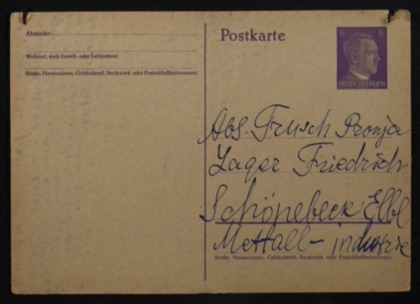 Postkarte
Absender:
6 6
DEUTSCHES REICH
Wohnort, auch Zustell- oder Leitpostamt
Straße, Hausnummer, Gebäudeteil, Stockwerk oder Postschließfachnummer
Abs. Frusch Pronja
Lager Friedrich
Schönebeck Elbl
Mettall – industrie
Straße, Hausnummer, Gebäudeteil, Stockwerk oder Postschließfachnummer